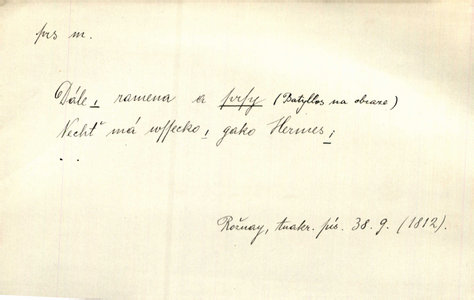 prs m.
Dále, ramena a prsy (Batyllos na obraze)
Nechť má wssecko, gako Hermes;
..
Rožnay, Anakr. pís. 38. 9. (1812).